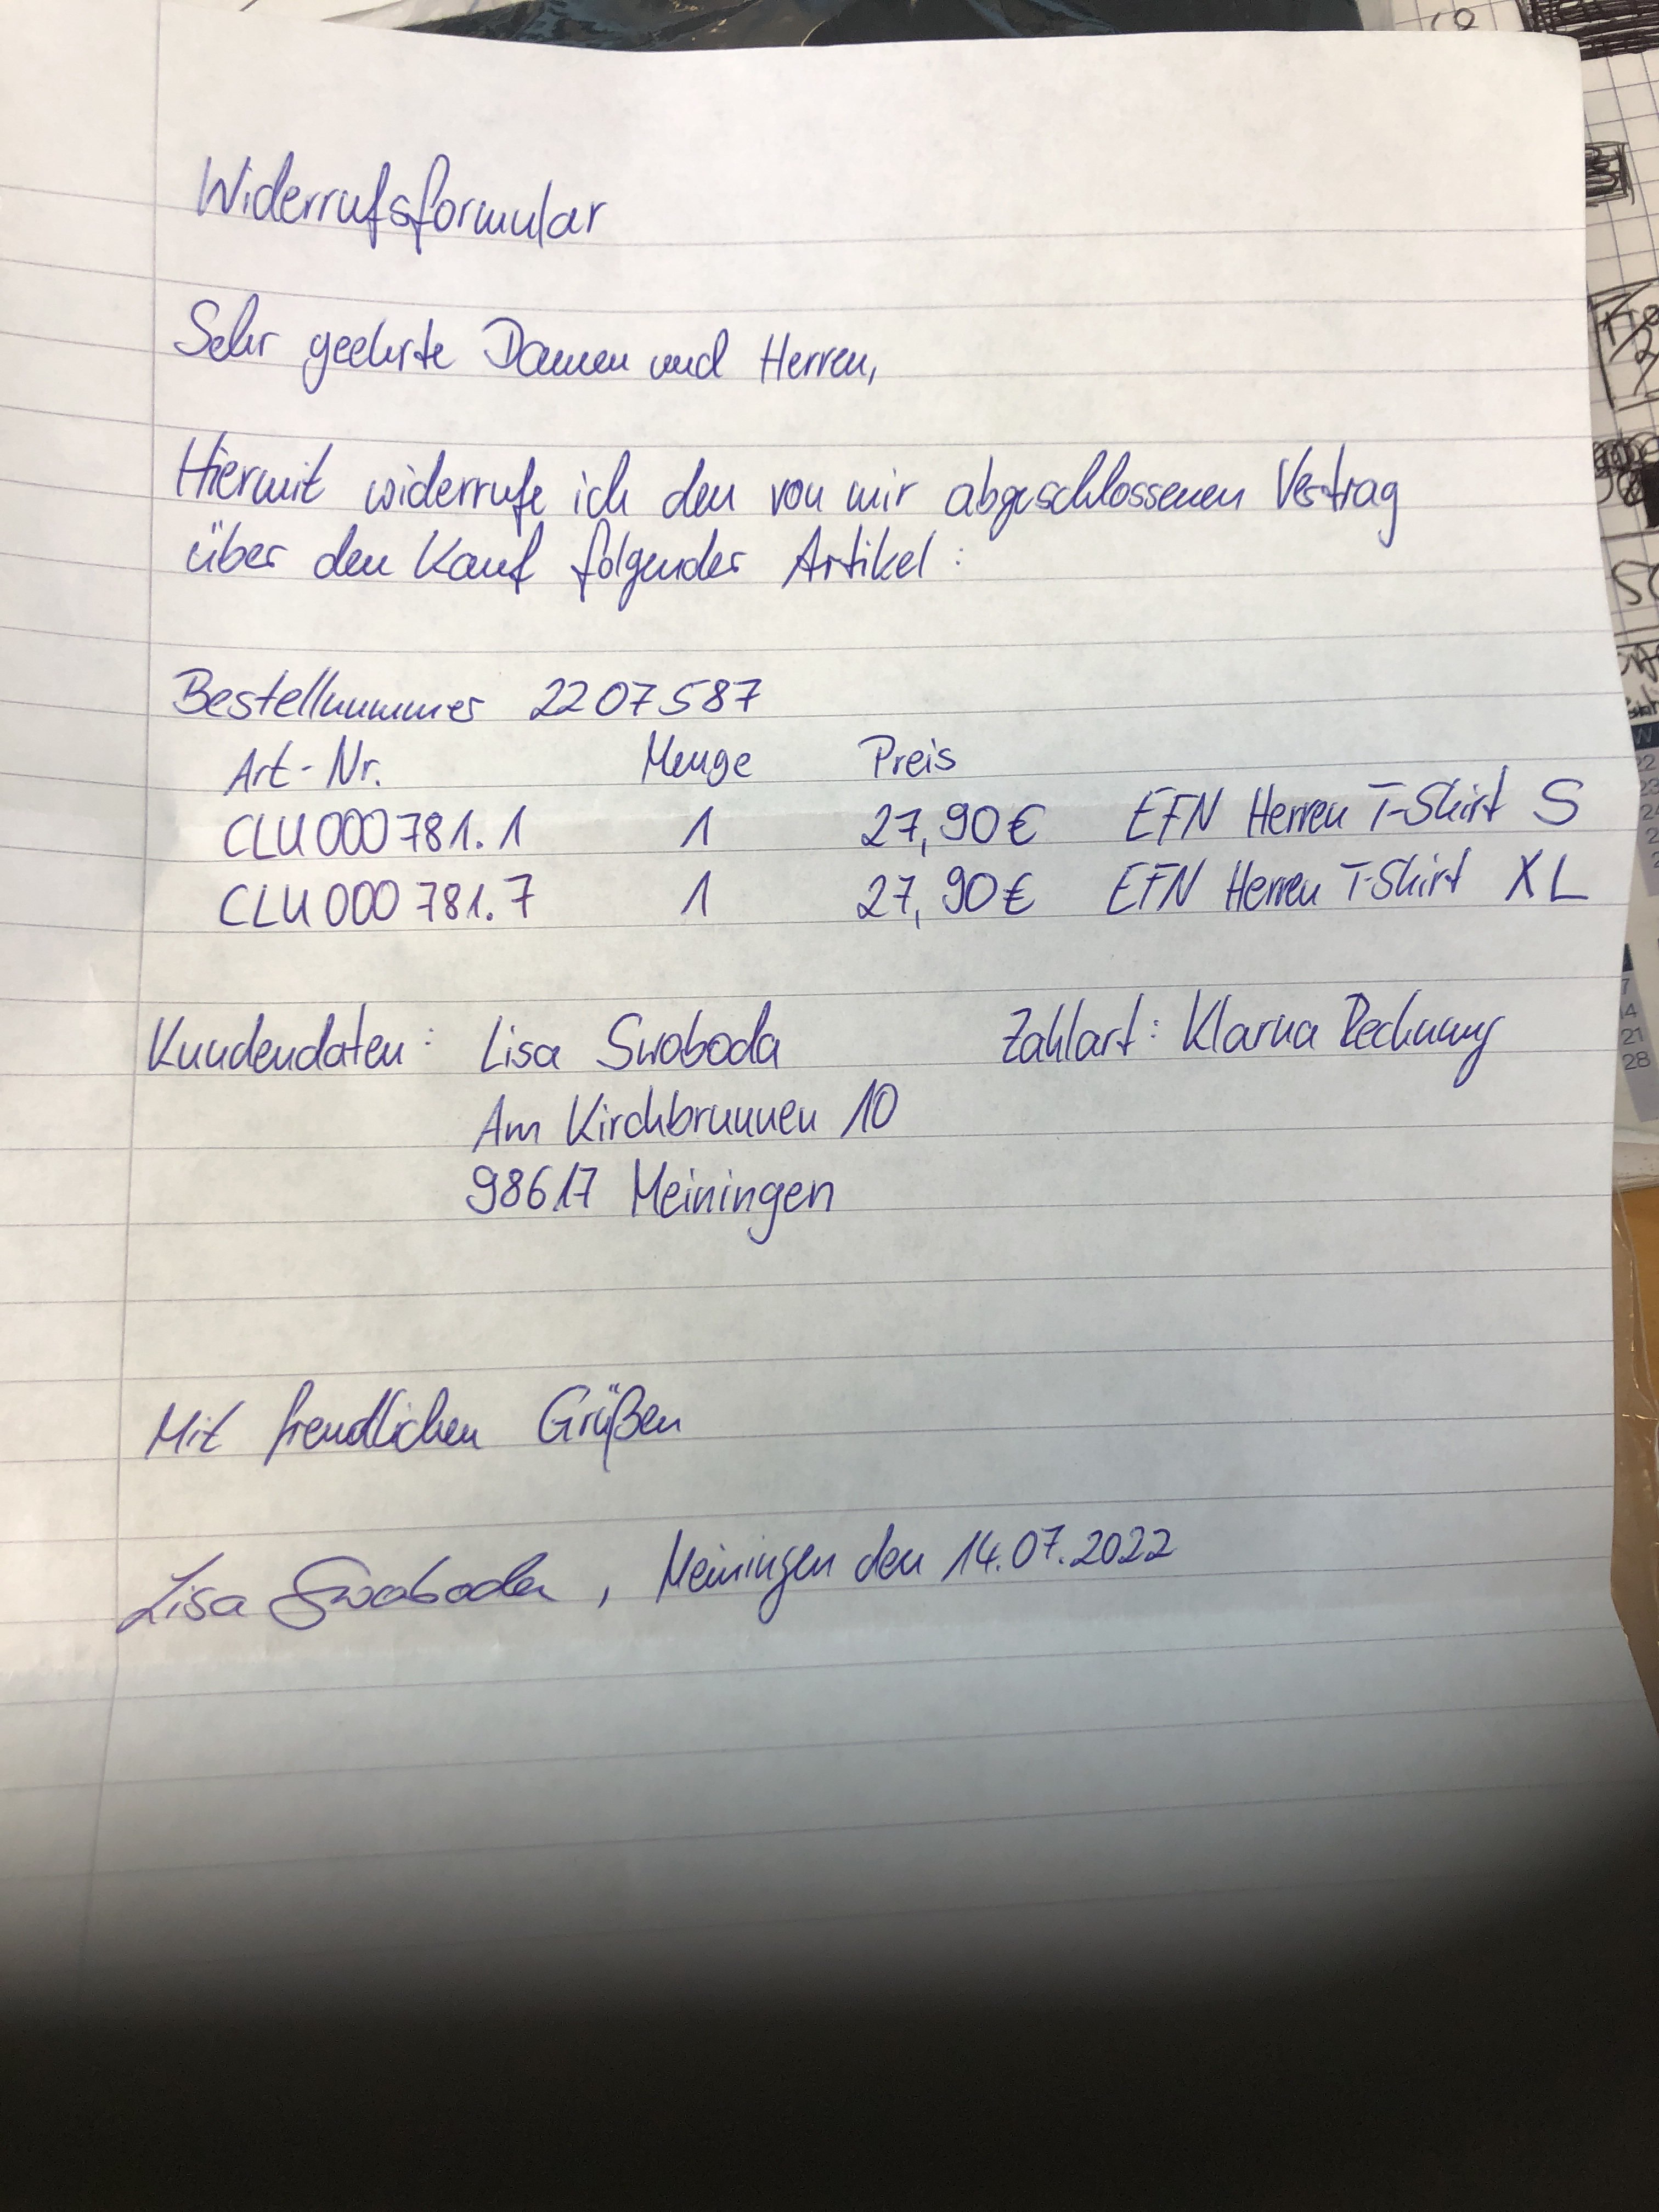 Widerrufsformular
Sehr geehrte Damen und Herren,
Hiermit widerrufe ich den von mir abgeschlossenen Vertrag
über den Kauf folgender Artikel:
Bestellnummer 2207587
Art-Nr. Menge Preis
CLU000781.1 1 27,90€ EFN Herren T-Shirt S
CLU000781.7 1 27,90€ EFN Herren T-Shirt XL
Kundendaten: Lisa Swoboda Zahlart: Klarna Rechnung
Am Kirchbrunnen 10
98617 Meiningen
Mit freundlichen Grüßen
Lisa Swoboda, Meiningen den 14.07.2022
22
23
7
14
21
28